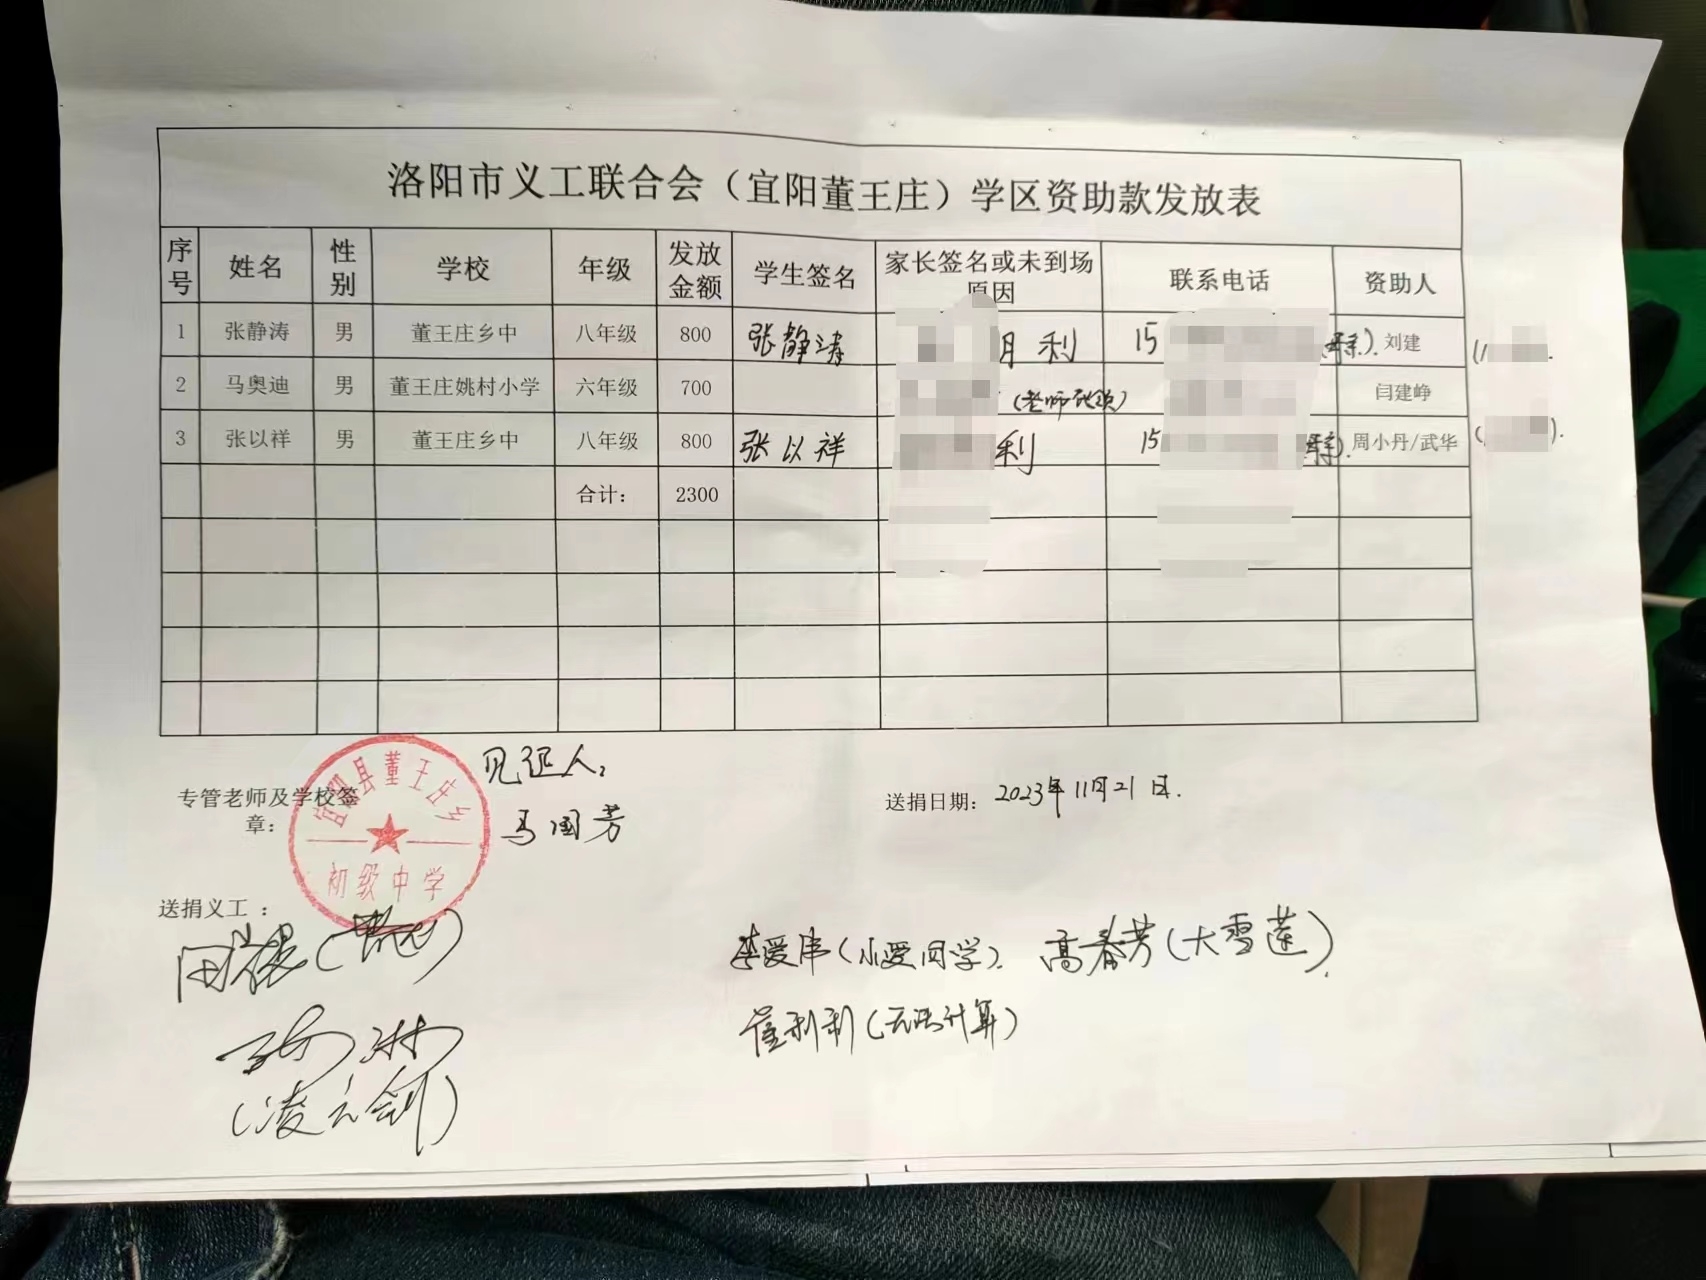 洛阳市义工联合会（宜阳董王庄）学区资助款发放表
序号 姓名 性别 学校 年级 发放金额 学生签名 家长签名或未到场原因 联系电话 资助人
1 张静涛 男 董王庄乡中 八年级 800 张静涛 利 15 刘建
2 马奥迪 男 董王庄姚村小学 六年级 700 (老师代领) 闫建峥
3 张以祥 男 董王庄乡中 八年级 800 张以祥 利 15 周小丹/武华
合计： 2300
专管老师及学校签章：
宜阳县董王庄乡
初级中学
见证人:
马国芳
送捐日期： 2023年11月21日.
送捐义工：
李爱串(小爱同学). 高春芳(大雪莲).
崔利利(无法计算)
(凌云剑)